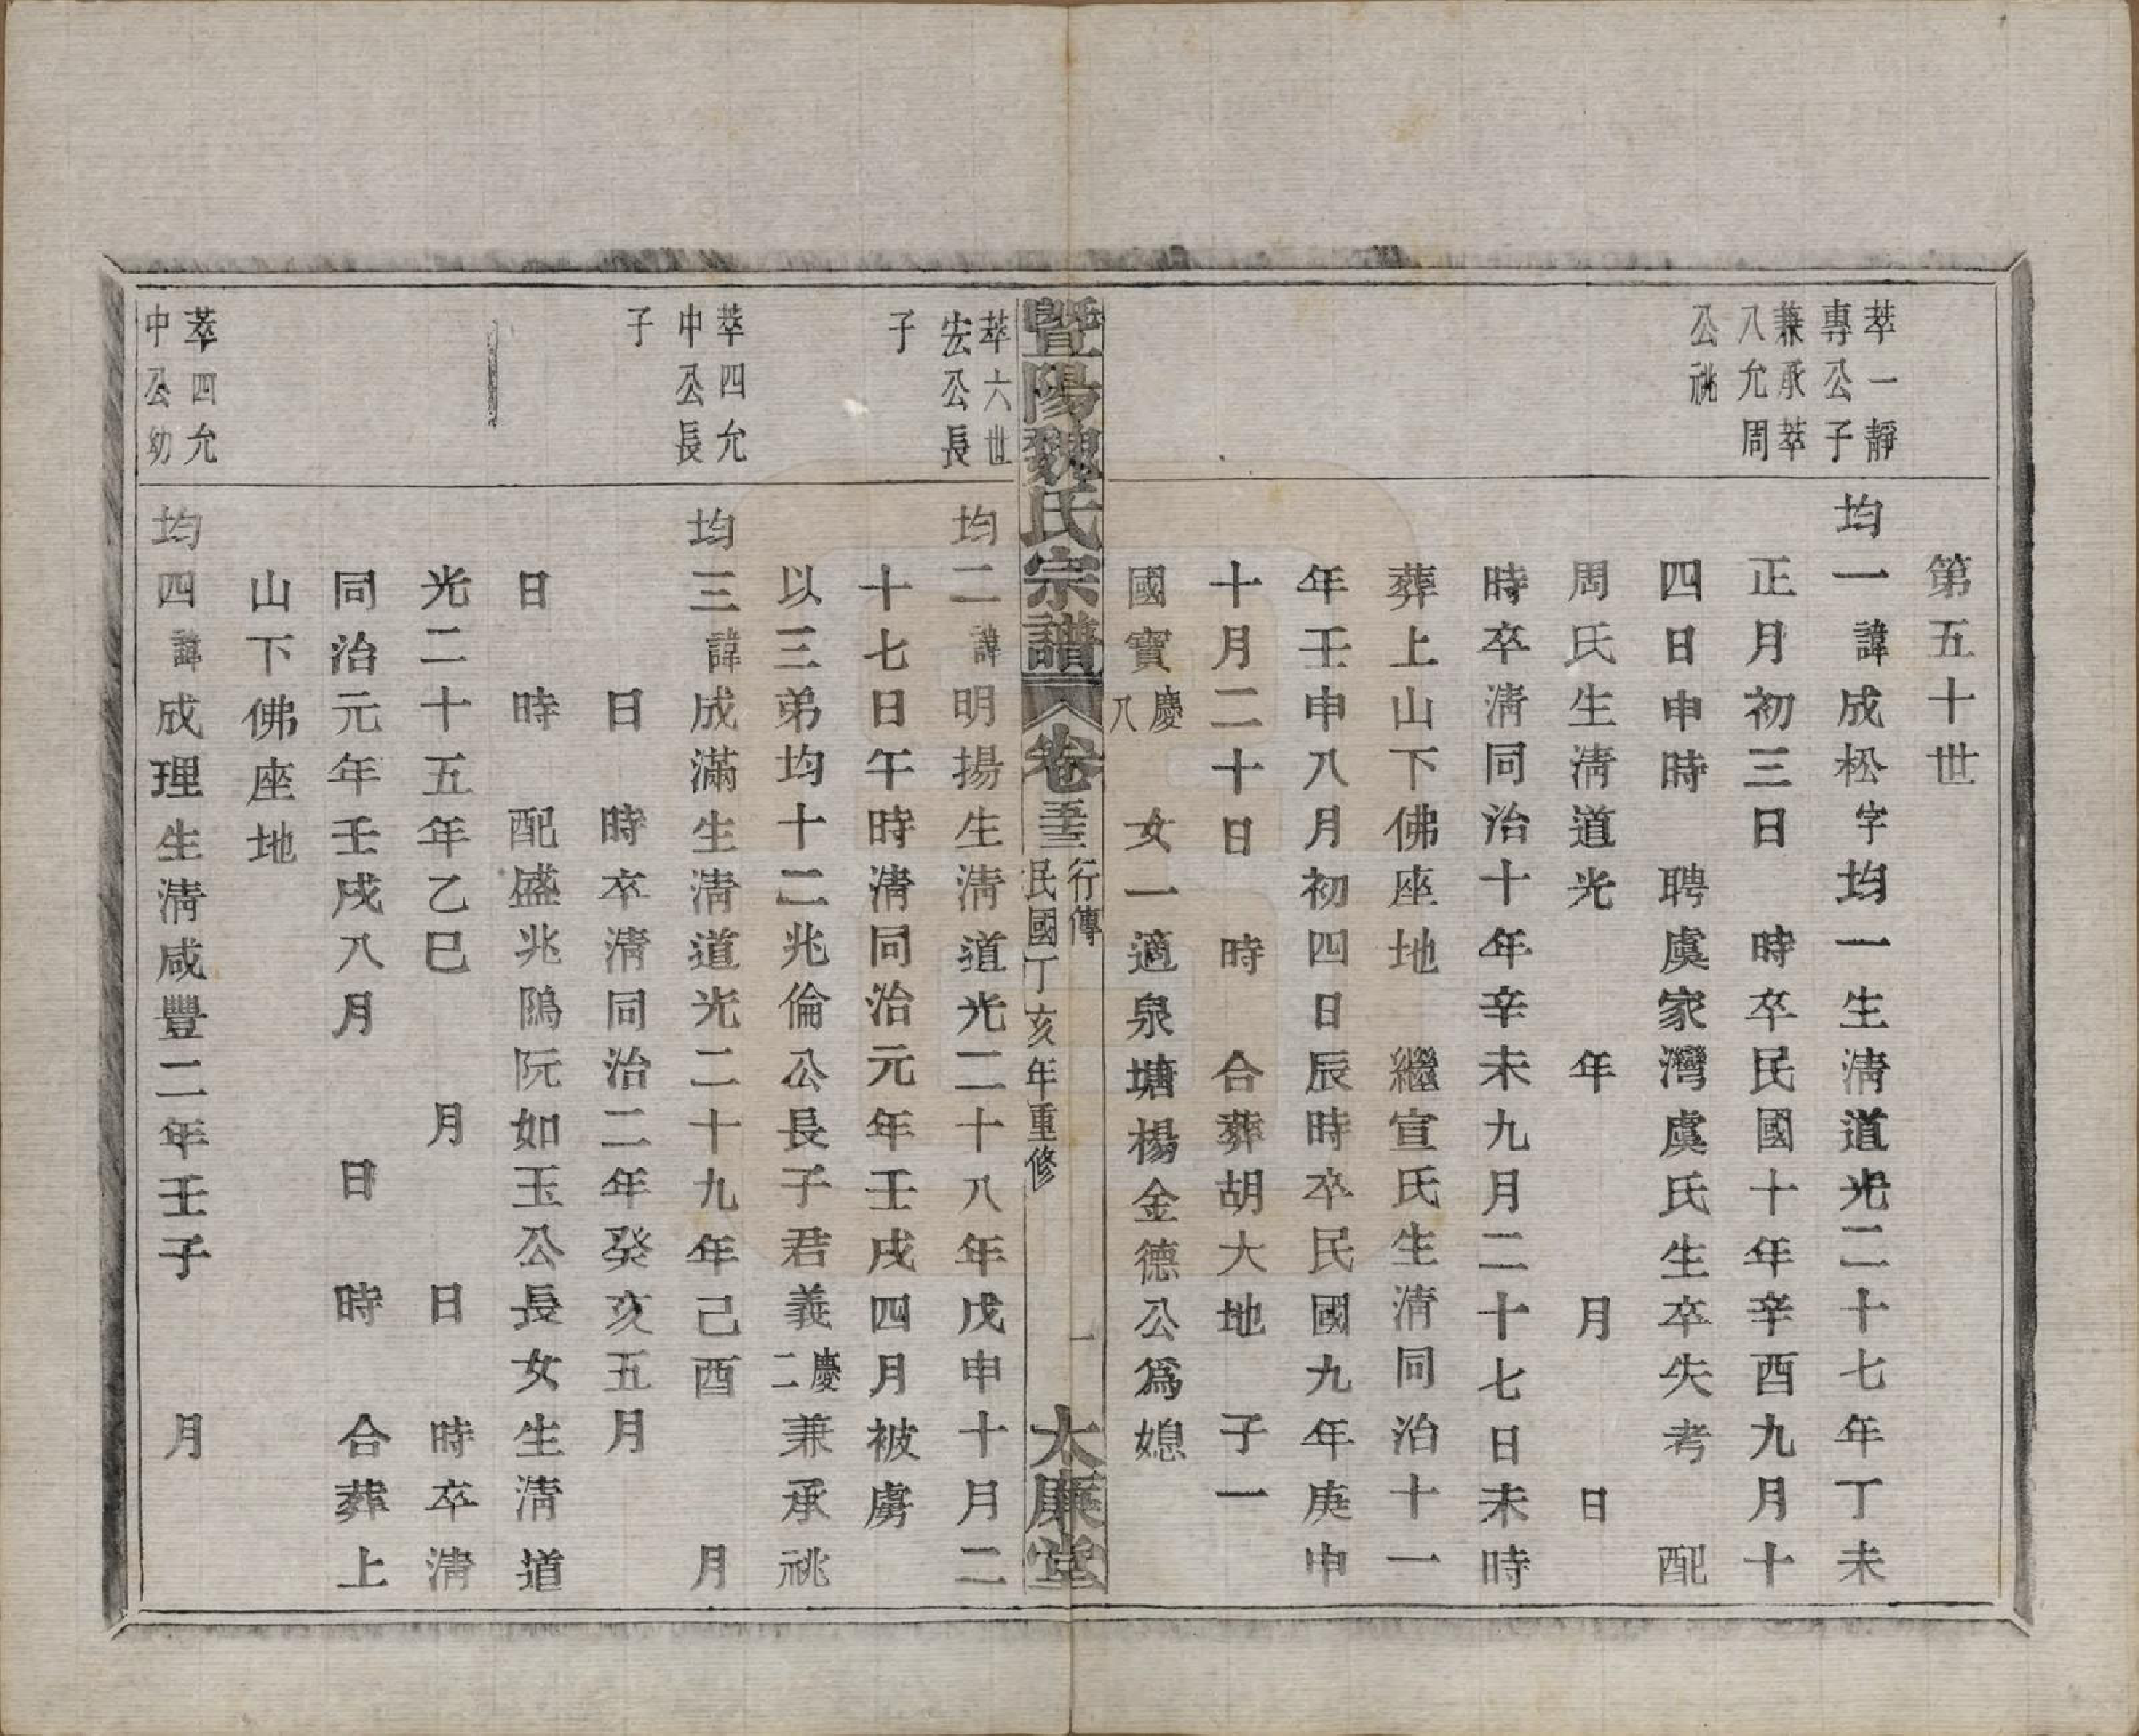 第五十世
萃一靜
專公子
兼承萃
八允周
公祧
均一諱成松字均一生淸道光二十七年丁未
正月初三日　時卒民國十年辛酉九月十
四日申時　聘虞家灣虞氏生卒失考　配
周氏生淸道光　年　月　日
時卒淸同治十年辛未九月二十七日未時
葬上山下佛座地　繼宣氏生淸同治十一
年壬申八月初四日辰時卒民國九年庚申
十月二十日　時　合葬胡大地　子一
國寶慶八　女一適泉塘楊金德公爲媳
暨陽魏氏宗譜　卷五十三　行傳　民國丁亥年重修　一　大廉堂
萃六世
宏公長
子
均二諱明揚生淸道光二十八年戊申十月二
十七日午時淸同治元年壬戌四月被虜
以三弟均十二兆倫公長子君義慶二兼承祧
萃四允
中公長
子
均三諱成滿生淸道光二十九年己酉　月
日　時卒淸同治二年癸亥五月
日　時　配盛兆隝阮如玉公長女生淸道
光二十五年乙巳　月　日　時卒淸
同治元年壬戌八月　日　時　合葬上
山下佛座地
萃四允
中公幼
均四諱成理生淸咸豐二年壬子　月